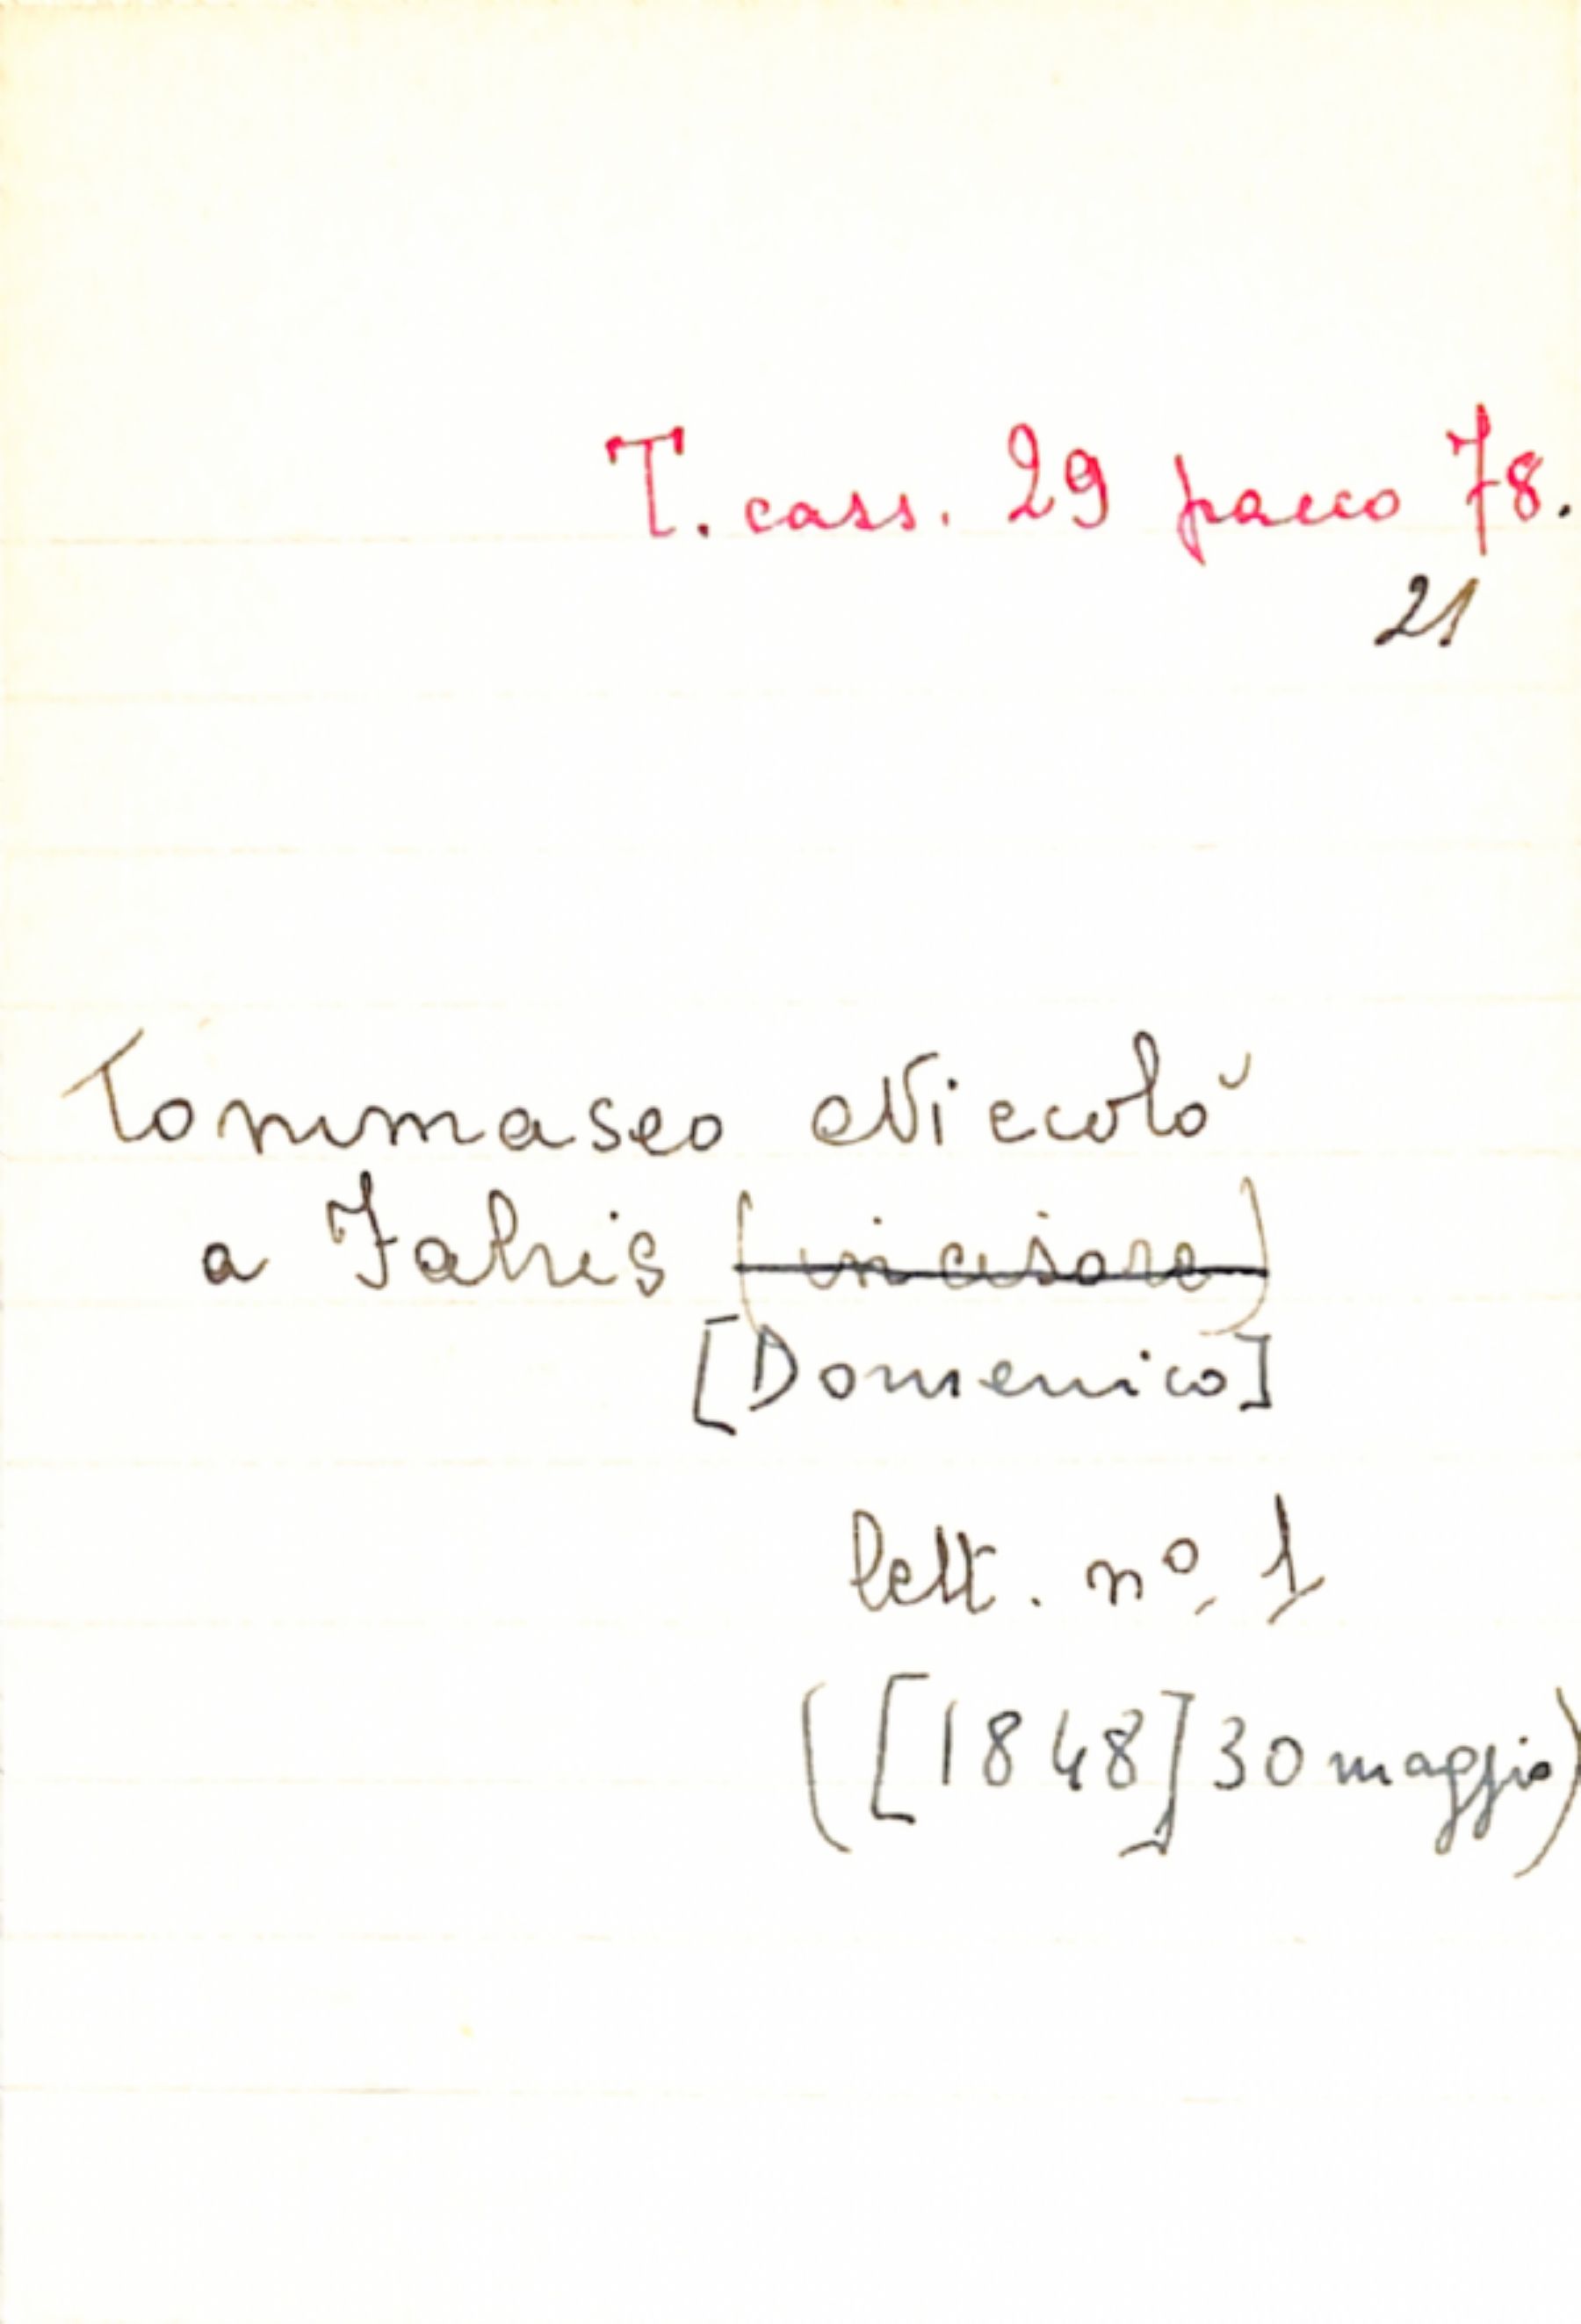 T. cass. 29 pacco 78.
21
Tommaseo Niccolò
a Fabris (incisore)
[Domenico]
lett. nº 1
([1848] 30 maggio)